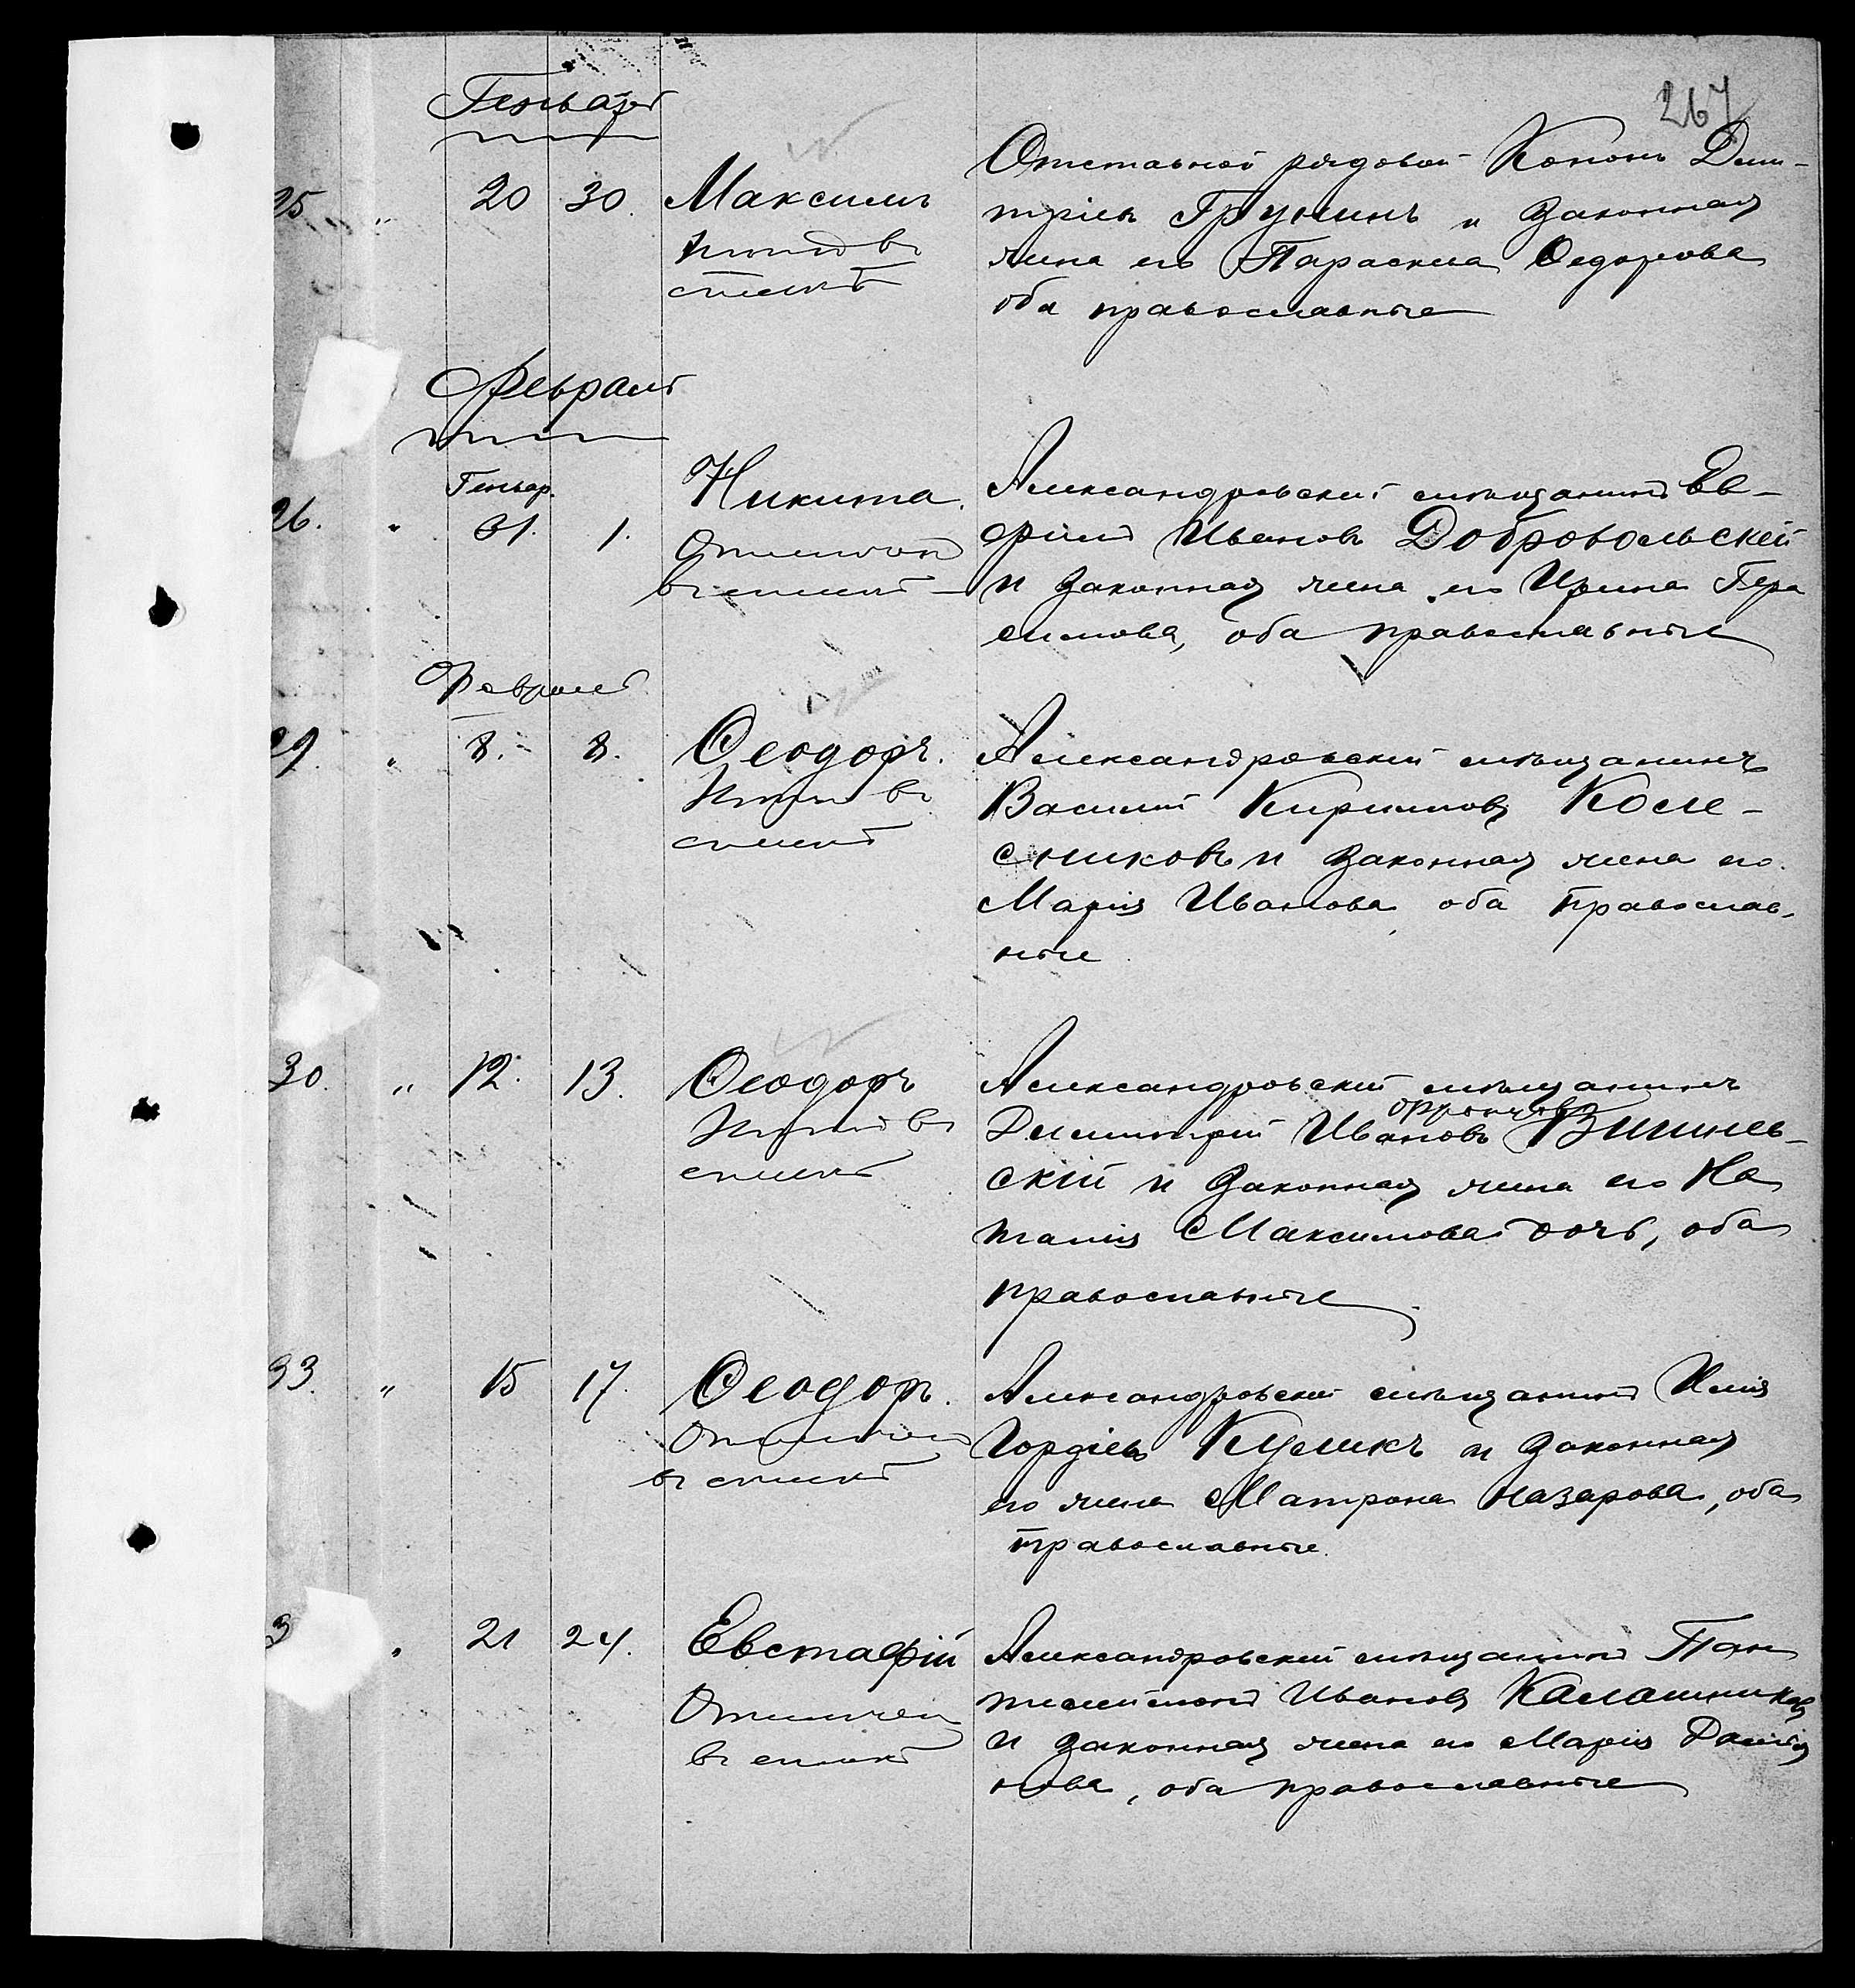 267
Генварь
25 " 20 30. Максимъ
Отставной рядовой Кононъ Дим-
тріевъ Грунинъ и законная
жена его Параскева Ѳедорова
оба православные
въ
списк
Февраль
Генвар.
26. " 31. 1. Никита.
въ списк
Александровскій мѣщанинъ Ев-
фимъ Ивановъ Добровольскій
и законная жена его Ирина Гера
симова, оба православные
Февраль
29. " 8. 8. Ѳеодоръ.
въ
списк
Александровскій мѣщанинъ
Василій Кириловъ Коле-
сниковъ и законная жена его
Марія Иванова оба православ-
ные
30. " 12. 13. Ѳеодоръ
въ
списк
Александровскій мѣщанинъ
Димитрій Ивановъ Вишнев-
скій и законная жена его На
талія Максимова дочь, оба
православные
33. " 15 17. Ѳеодоръ.
въ списк
Александровскій мѣщанинъ Илія
Гордіевъ Куликъ и законная
его жена Матрона Назарова, оба
православные.
3 " 21 24. Евстафій
Отмѣчен
въ списк
Александровскій мѣщанинъ Пан
телеимонъ Ивановъ Калашников
и законная жена его Марія
нова, оба православные